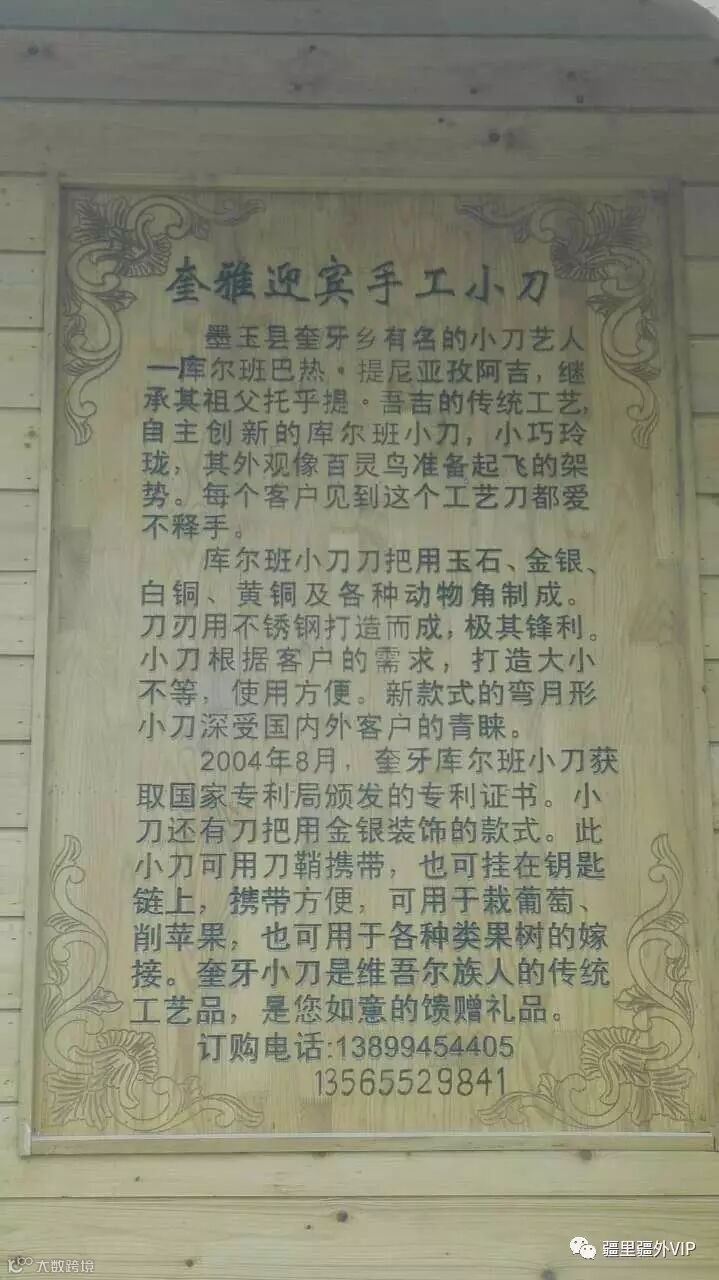 奎雅迎宾手工小刀
墨玉县奎牙乡有名的小刀艺人
—库尔班巴热·提尼亚孜阿吉，继
承其祖父托乎提·吾吉的传统工艺，
自主创新的库尔班小刀，小巧玲
珑，其外观像百灵鸟准备起飞的架
势。每个客户见到这个工艺刀都爱
不释手。
库尔班小刀刀把用玉石、金银、
白铜、黄铜及各种动物角制成。
刀刃用不锈钢打造而成，极其锋利。
小刀根据客户的需求，打造大小
不等，使用方便。新款式的弯月形
小刀深受国内外客户的青睐。
2004年8月，奎牙库尔班小刀获
取国家专利局颁发的专利证书。小
刀还有刀把用金银装饰的款式。此
小刀可用刀鞘携带，也可挂在钥匙
链上，携带方便，可用于栽葡萄、
削苹果，也可用于各种类果树的嫁
接。奎牙小刀是维吾尔族人的传统
工艺品，是您如意的馈赠礼品。
订购电话:13899454405
13565529841
疆里疆外VIP
大数跨境